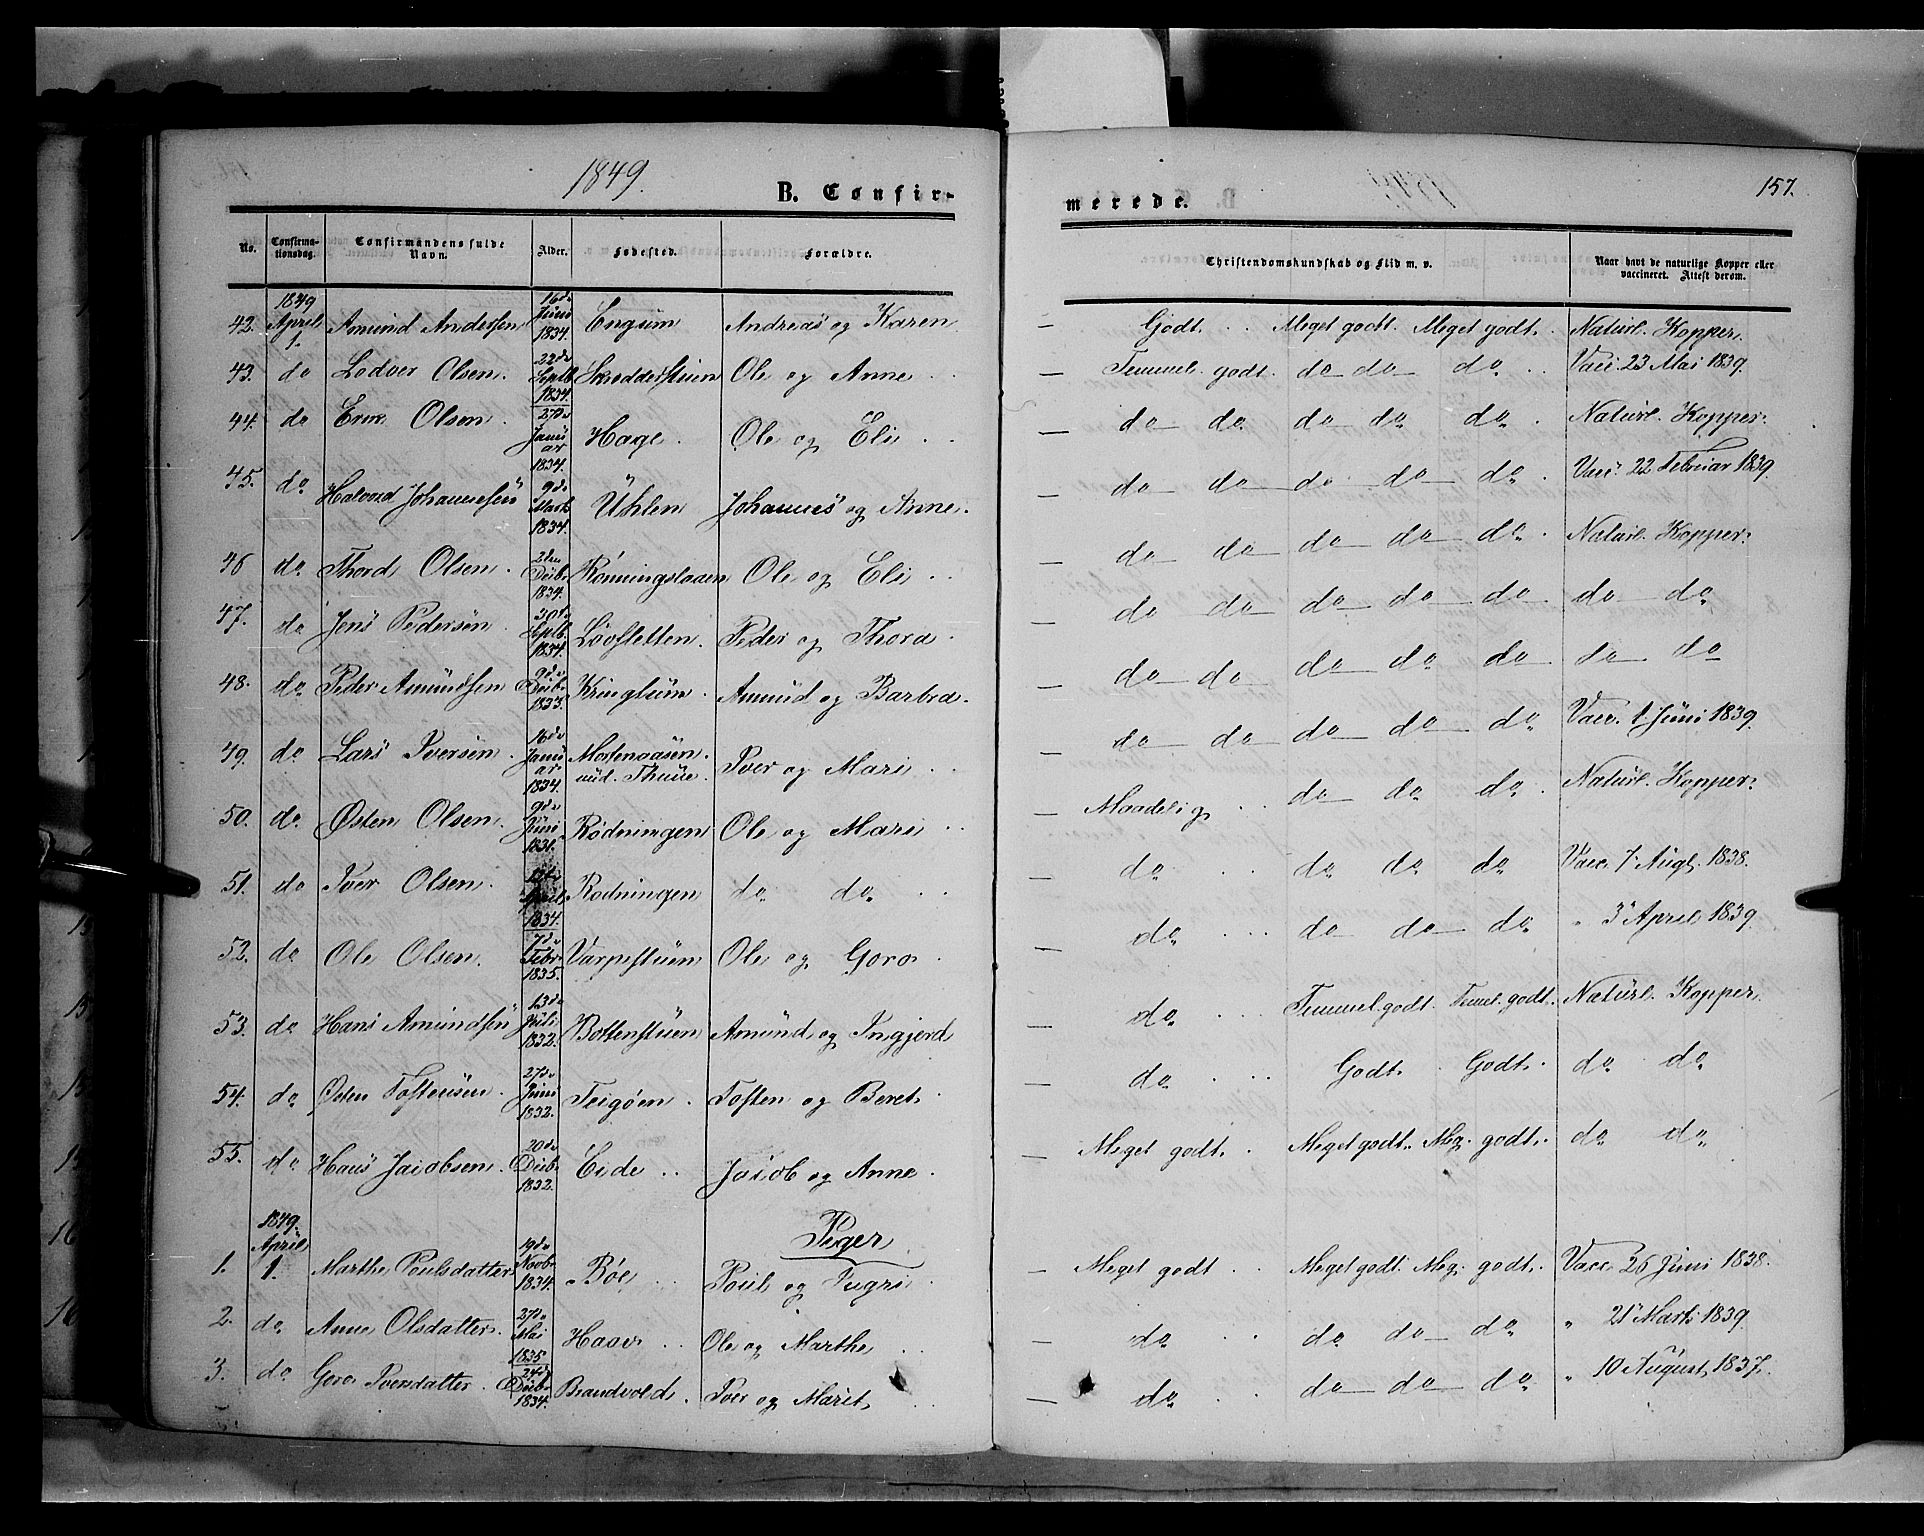 1849.
B. Confirmerede.
157.
No. Confirmationsdag. Confirmandens fulde Navn. Alder. Fødested. Forældre. Christendomskundskab og Flid m. v. Naar havt de naturlige Kopper eller vaccineret. Attest derom.
42. 1849 April 1. Amund Andersen 16de Juni 1834. Engum Andreas og Karen — Godt. Meget godt. Meget godt. Naturl. Kopper.
43. do Lodver Olsen. 22de Septb. 1834. Skredderstuen Ole og Anne — Temmel. godt. do do do Vacc. 23 Mai 1839.
44. do Erik Olsen. 27de Januar 1834. Hage. Ole og Eli — do do do do do Naturl. Kopper.
45. do Halvord Johannesen 9de Marts 1834. Uhlen Johannes og Anne. — do do do do do Vacc. 22 Februar 1839.
46 do Thord Olsen. 2den Decbr. 1834. Rønningslaaen Ole og Eli — do do do do do Naturl. Kopper.
47. do Jens Pedersen 30de Septb. 1834. Løvsletten. Peder og Thora — do do do do do do do
48. do Peder Amundsen 9de Decbr. 1833. Kringlum. Amund og Barbra — do do do do do do do
49. do Lars Iversen 16de Januar 1834. Mortenaasen und. Thune. Iver og Mari — do do do do do Vacc. 1 Juni 1839.
50. do Østen Olsen. 9de Juni 1831. Rødningen Ole og Mari — Maadelig do do do Naturl. Kopper.
51. do Iver Olsen. April 1834. Rødningen do do — do do do do Vacc. 7 Augt. 1838.
52. do Ole Olsen. 7de Febr. 1835. Varpestuen Ole og Goro — do do do do " 3 April 1839.
53. do Hans Amundsen 13de Juli 1832. Bottenstuen Amund og Ingjerd — do Temmel. godt. Temel. godt. Naturl. Kopper.
54. do Østen Tostensen. 27de Juni 1832. Teigøen. Tosten og Beret — do Godt. Godt. do do
55. do Hans Jacobsen 20de Decbr. 1832. Eide Jacob og Anne — Meget godt. Meget godt. Meg. godt. do do
Piger
1. 1849. April 1. Marthe Poulsdatter 19de Novbr. 1834. Bøe Poul og Tugri — Meget godt Meget godt. Meg. godt. Vacc. 26 Juni 1838.
2. do Anne Olsdatter 27de Mai 1835 Haave Ole og Marthe — do do do do " 21 Marts 1839.
3. do Goro Iversdatter. 24de Decbr. 1834. Brandvold. Iver og Marit — do do do do " 10 August 1837.